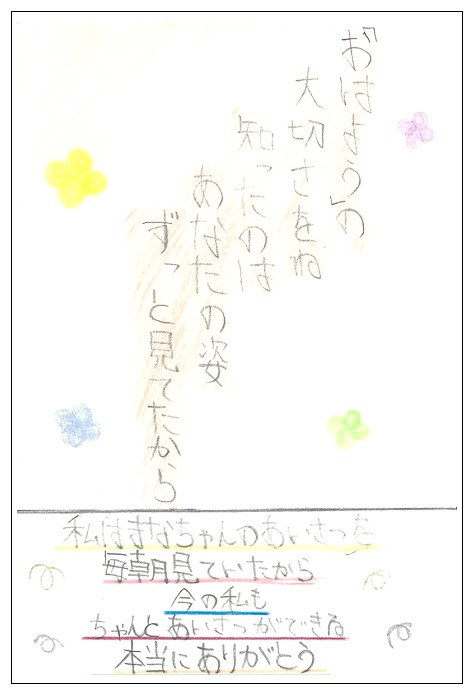 「おはよう」の
大切さをね
知ったのは
あなたの姿
ずっと見てたから
私はまなちゃんのあいさつを
毎朝見ていたから
今の私も
ちゃんとあいさつができる
本当にありがとう